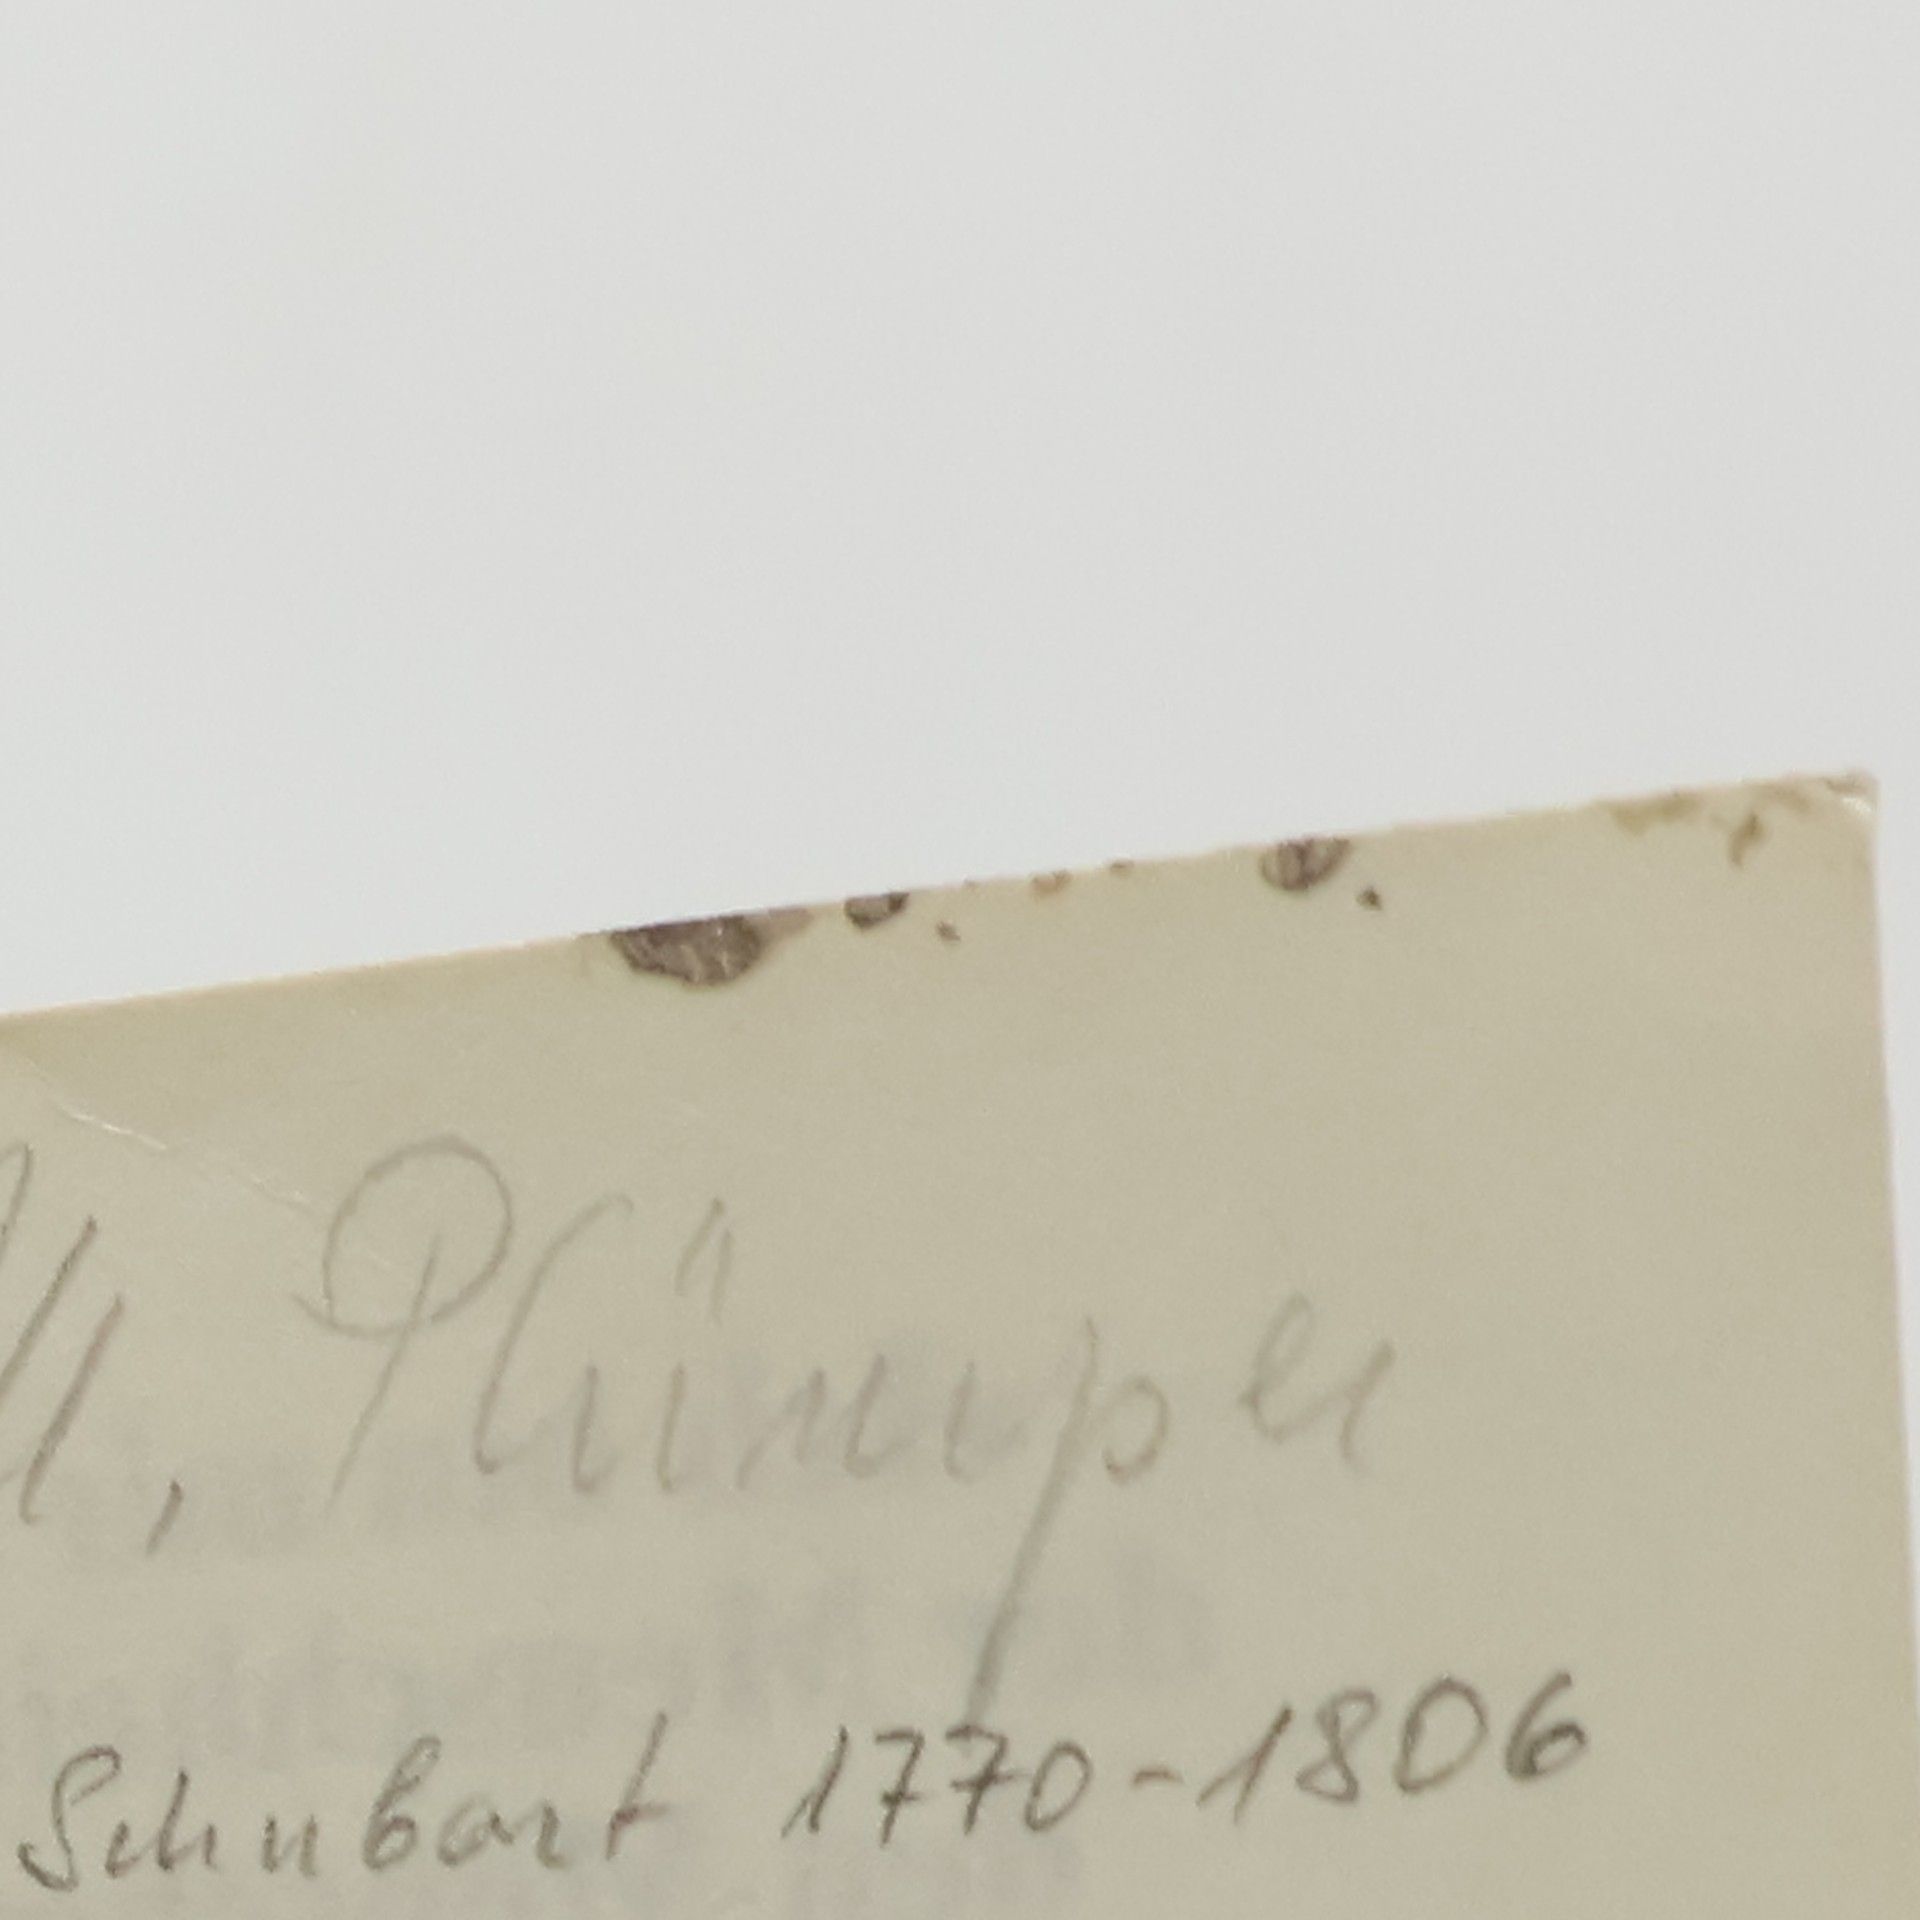 Plümper
Schubart 1770-1806